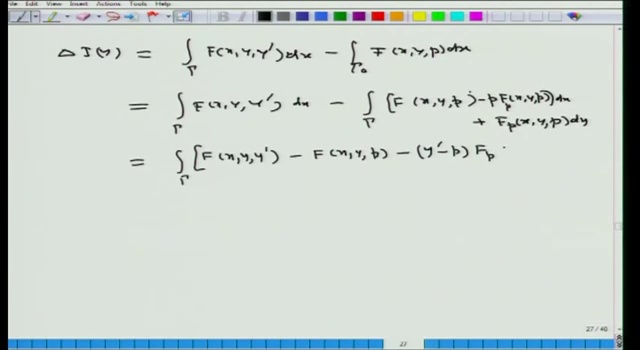 File Edit View Insert Actions Tools Help
Δ J(y) = ∫_Γ F(x, y, y') dx − ∫_Γ₀ F(x, y, p) dx
= ∫_Γ F(x, y, y') dx − ∫_Γ [F(x, y, p) − p F_p(x, y, p)] dx
+ F_p(x, y, p) dy
= ∫_Γ [F(x, y, y') − F(x, y, p) − (y' − p) F_p
27 / 40
27